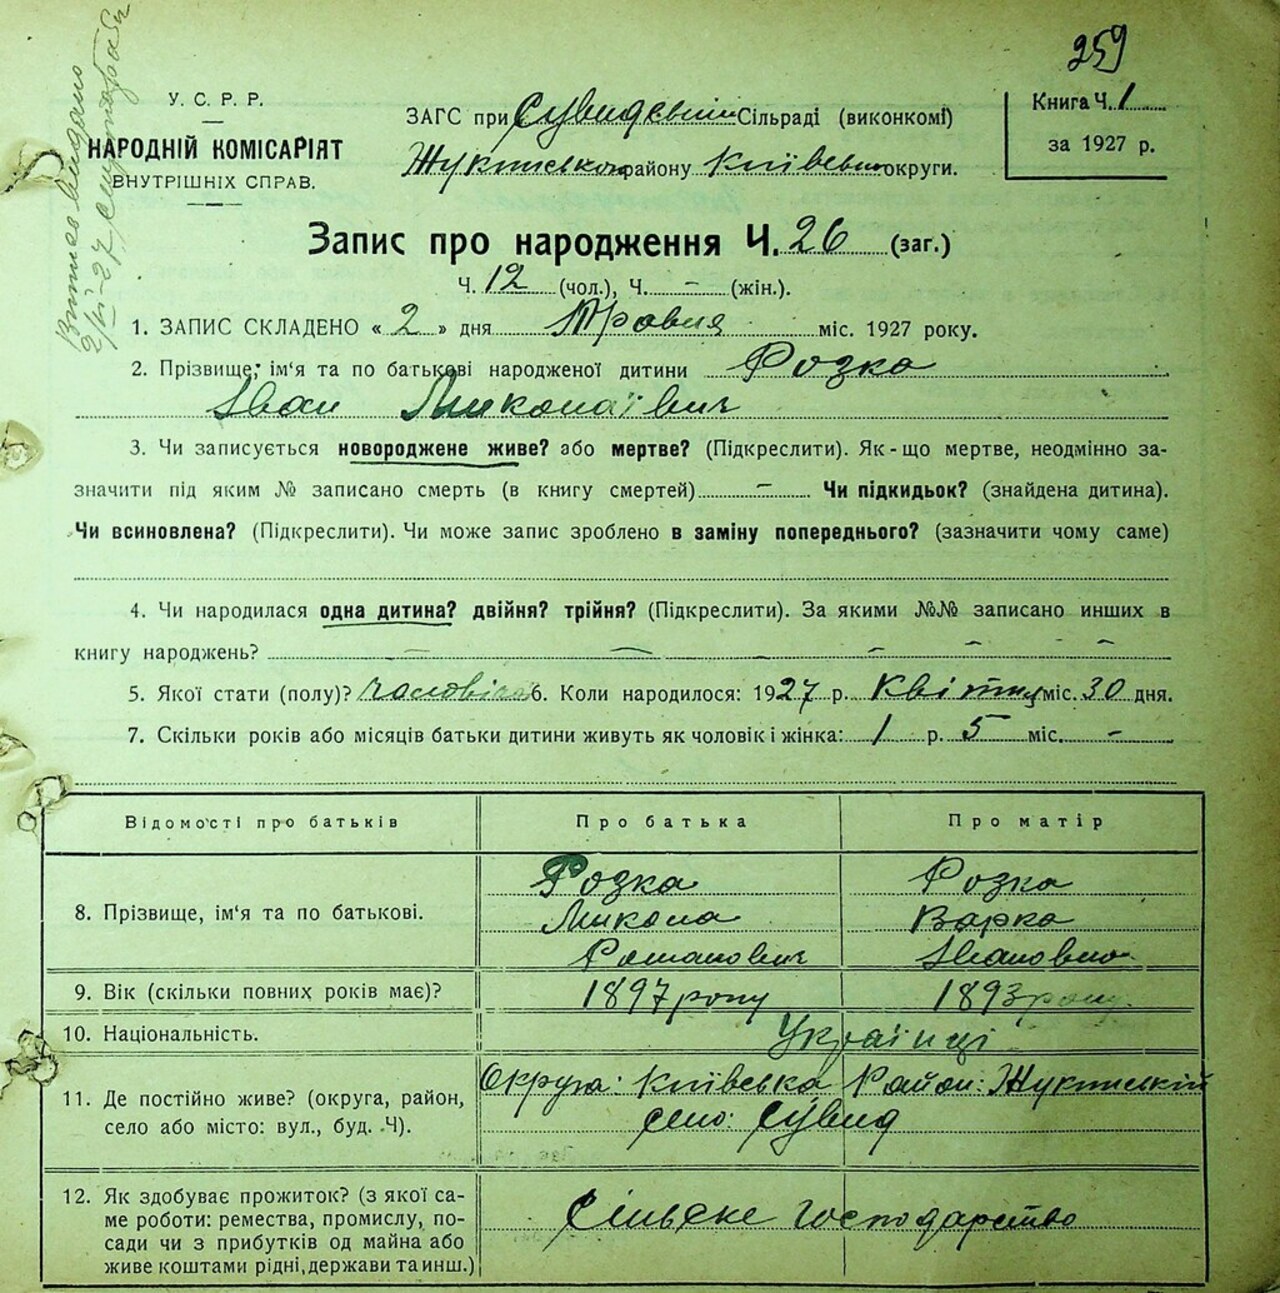 259
У. С. Р. Р.
НАРОДНІЙ КОМІСАРІЯТ
ВНУТРІШНІХ СПРАВ.
ЗАГС при Сувидській Сільраді (виконкомі)
Жукинського району Київської округи.
Книга Ч. 1
за 1927 р.
Запис про народження Ч. 26 (заг.)
Ч. 12 (чол.), Ч. - (жін.).
1. ЗАПИС СКЛАДЕНО « 2 » дня Травня міс. 1927 року.
2. Прізвище, ім'я та по батькові народженої дитини Розка
Іван Миколаївич
3. Чи записується новороджене живе? або мертве? (Підкреслити). Як-що мертве, неодмінно за-
значити під яким № записано смерть (в книгу смертей) - Чи підкидьок? (знайдена дитина).
Чи всиновлена? (Підкреслити). Чи може запис зроблено в заміну попереднього? (зазначити чому саме)
4. Чи народилася одна дитина? двійня? трійня? (Підкреслити). За якими №№ записано инших в
книгу народжень? - - - - - -
5. Якої стати (полу)? 6. Коли народилося: 1927 р. Квітня міс. 30 дня.
7. Скільки років або місяців батьки дитини живуть як чоловік і жінка: 1 р. 5 міс. -
Відомості про батьків Про батька Про матір
8. Прізвище, ім'я та по батькові. Розка Микола Романович Розка Варка Івановна
9. Вік (скільки повних років має)? 1897 року 1893 року
10. Національність. Українці
11. Де постійно живе? (округа, район, Округа: Київська Район: Жукинській
село або місто: вул., буд. Ч). село: Сувид
12. Як здобуває прожиток? (з якої са-
ме роботи: ремества, промислу, по- Сільске господарство
сади чи з прибутків од майна або
живе коштами рідні, держави та инш.)